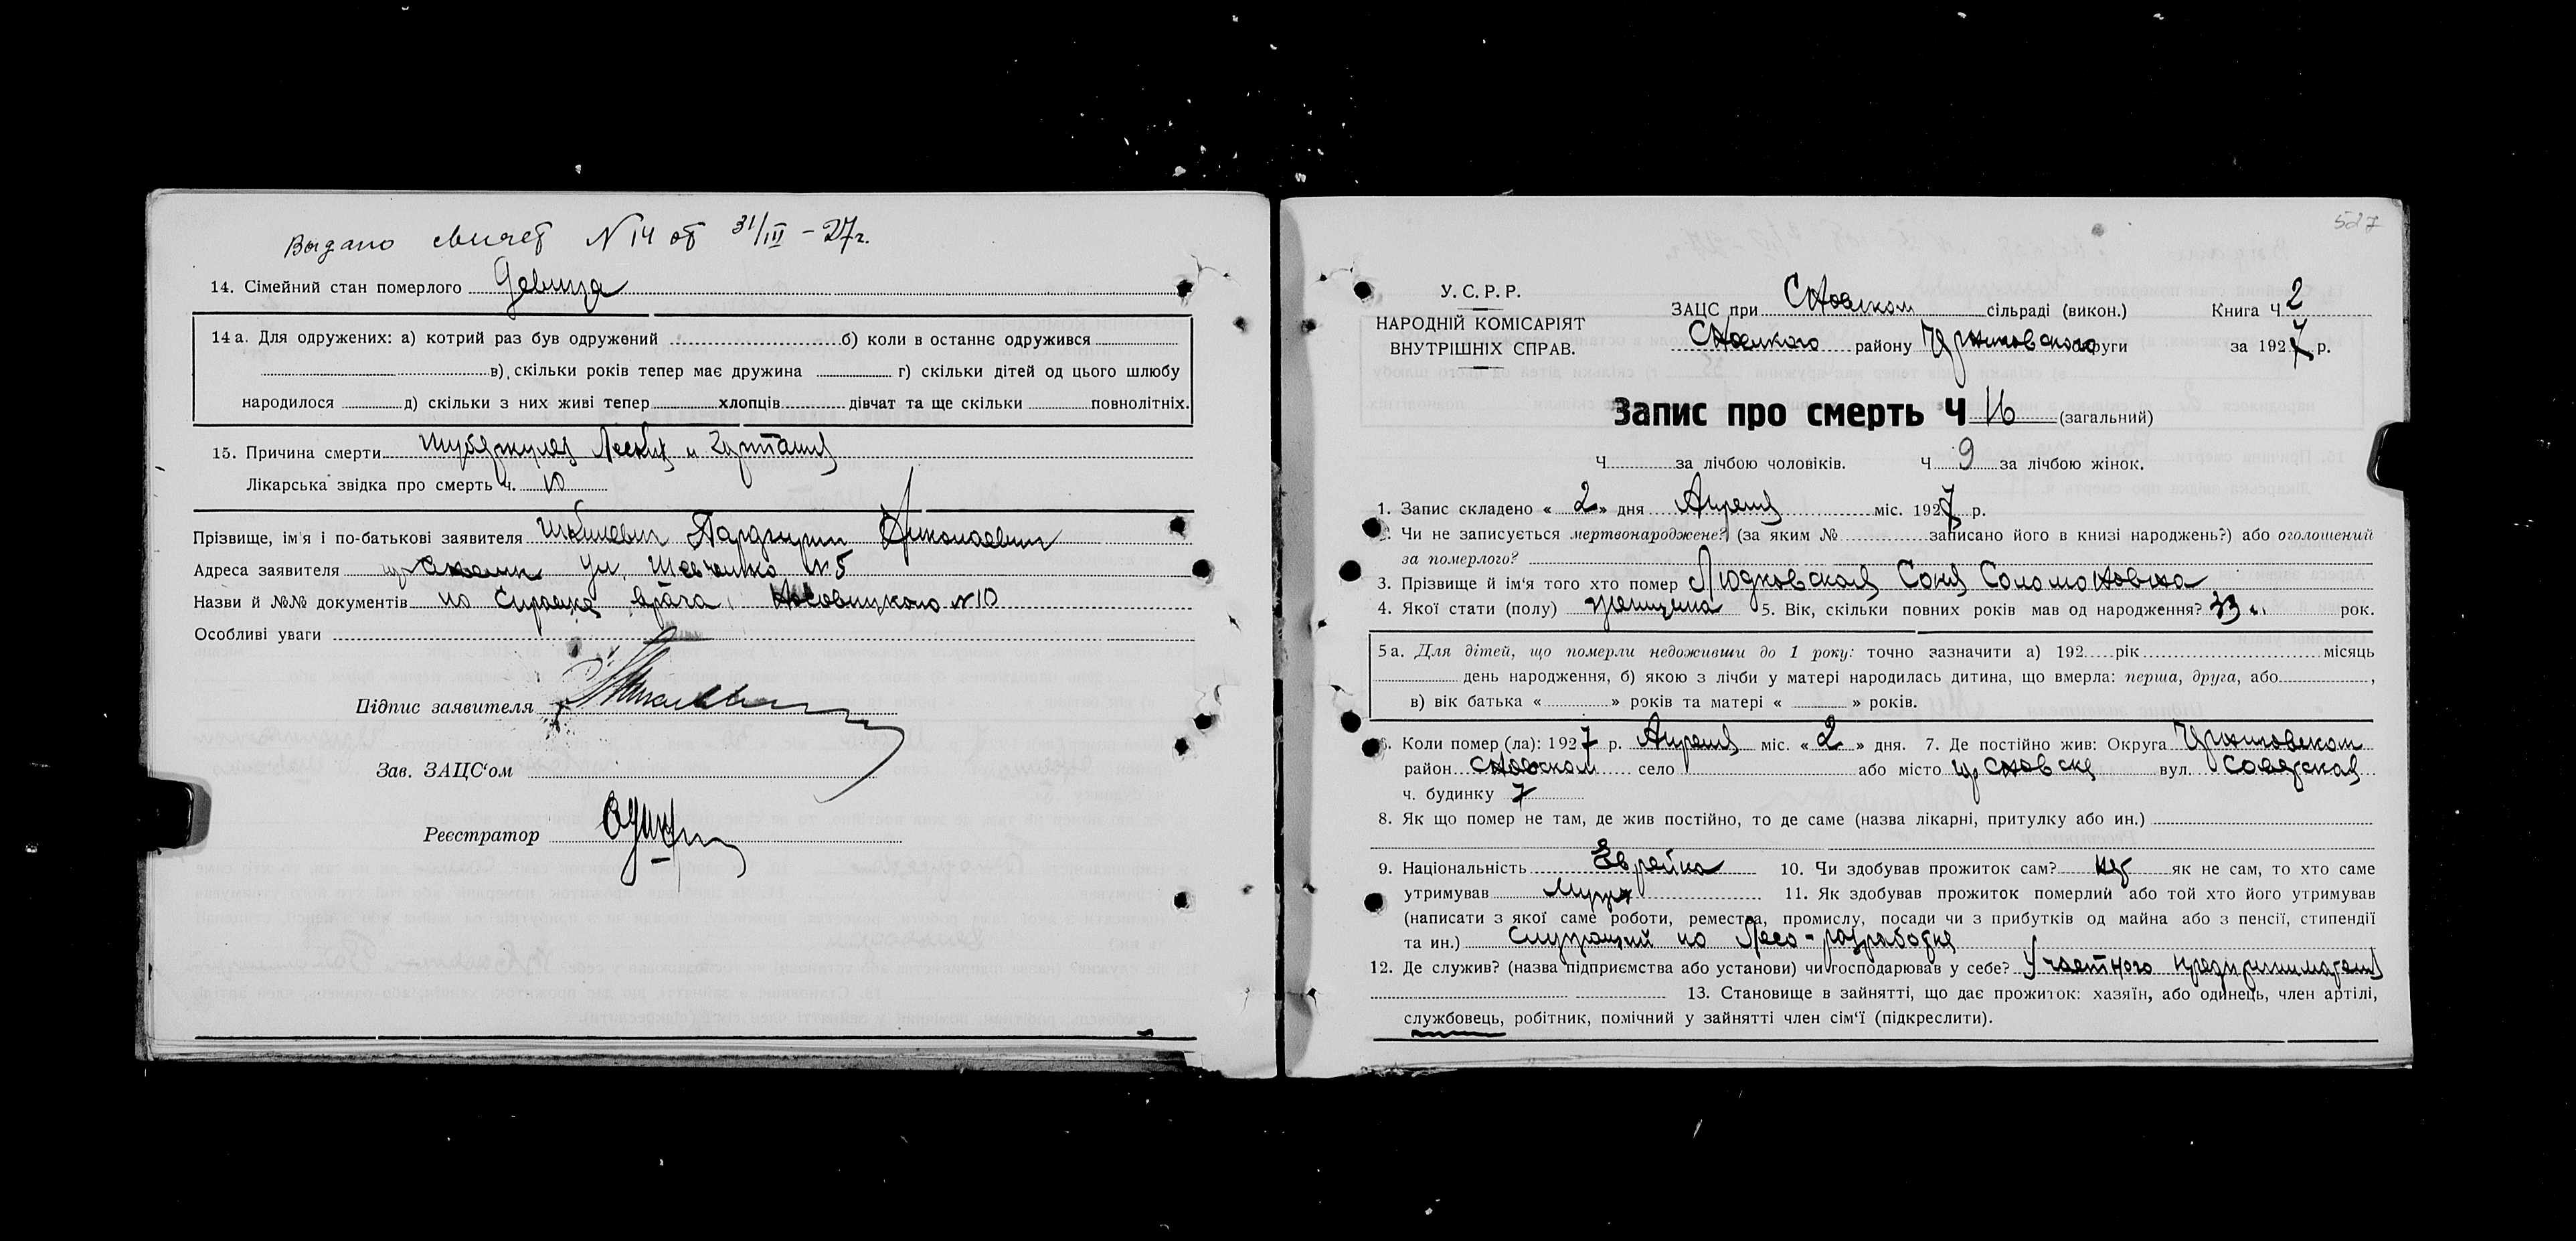 Выдано свидет N 14 от 31/III – 27 г.
14. Сімейний стан померлого Девица
14 а. Для одружених: а) котрий раз був одружений б) коли в останнє одружився
в) скільки років тепер має дружина г) скільки дітей од цього шлюбу
народилося д) скільки з них живі тепер хлопців дівчат та ще скільки повнолітніх.
15. Причина смерти Туберкулез Легких и Гортани
Лікарська звідка про смерть ч. 10
Прізвище, ім'я і по-батькові заявителя Николаевич
Адреса заявителя ул. Шевченко № 5
Назви й №№ документів по справке врача № 10
Особливі уваги
Підпис заявителя
Зав. ЗАЦС'ом
Реєстратор
527
У. С. Р. Р.
НАРОДНІЙ КОМІСАРІЯТ
ВНУТРІШНІХ СПРАВ.
ЗАЦС при Сновском сільраді (викон.) Книга Ч 2
Сновского району Черниговского округи за 1927 р.
Запис про смерть Ч 16 (загальний)
Ч за лічбою чоловіків. Ч 9 за лічбою жінок.
1. Запис складено « 2 » дня Апреля міс. 1927 р.
2. Чи не записується мертвонароджене? (за яким № записано його в книзі народжень?) або оголошений
за померлого?
3. Прізвище й ім'я того хто помер Людковская Соня Соломоновна
4. Якої стати (полу) женщина 5. Вік, скільки повних років мав од народження? 33 рок.
5 а. Для дітей, що померли недоживши до 1 року: точно зазначити а) 192 рік місяць
день народження, б) якою з лічби у матері народилась дитина, що вмерла: перша, друга, або ,
в) вік батька « » років та матері « » років.
6. Коли помер (ла): 1927 р. Апреля міс. « 2 » дня. 7. Де постійно жив: Округа Черниговском
район Сновском село або місто гор Сновске вул. Советская
ч. будинку 7
8. Як що помер не там, де жив постійно, то де саме (назва лікарні, притулку або ин.)
9. Національність Еврейка 10. Чи здобував прожиток сам? нет як не сам, то хто саме
утримував Муж 11. Як здобував прожиток померлий або той хто його утримував
(написати з якої саме роботи, ремества, промислу, посади чи з прибутків од майна або з пенсії, стипендії
та ин.) Служащий по Лесо-разработке
12. Де служив? (назва підприємства або установи) чи господарював у себе? У частного предпринимателя
13. Становище в зайнятті, що дає прожиток: хазяїн, або одинець, член артілі,
службовець, робітник, помічний у зайнятті член сім'ї (підкреслити).